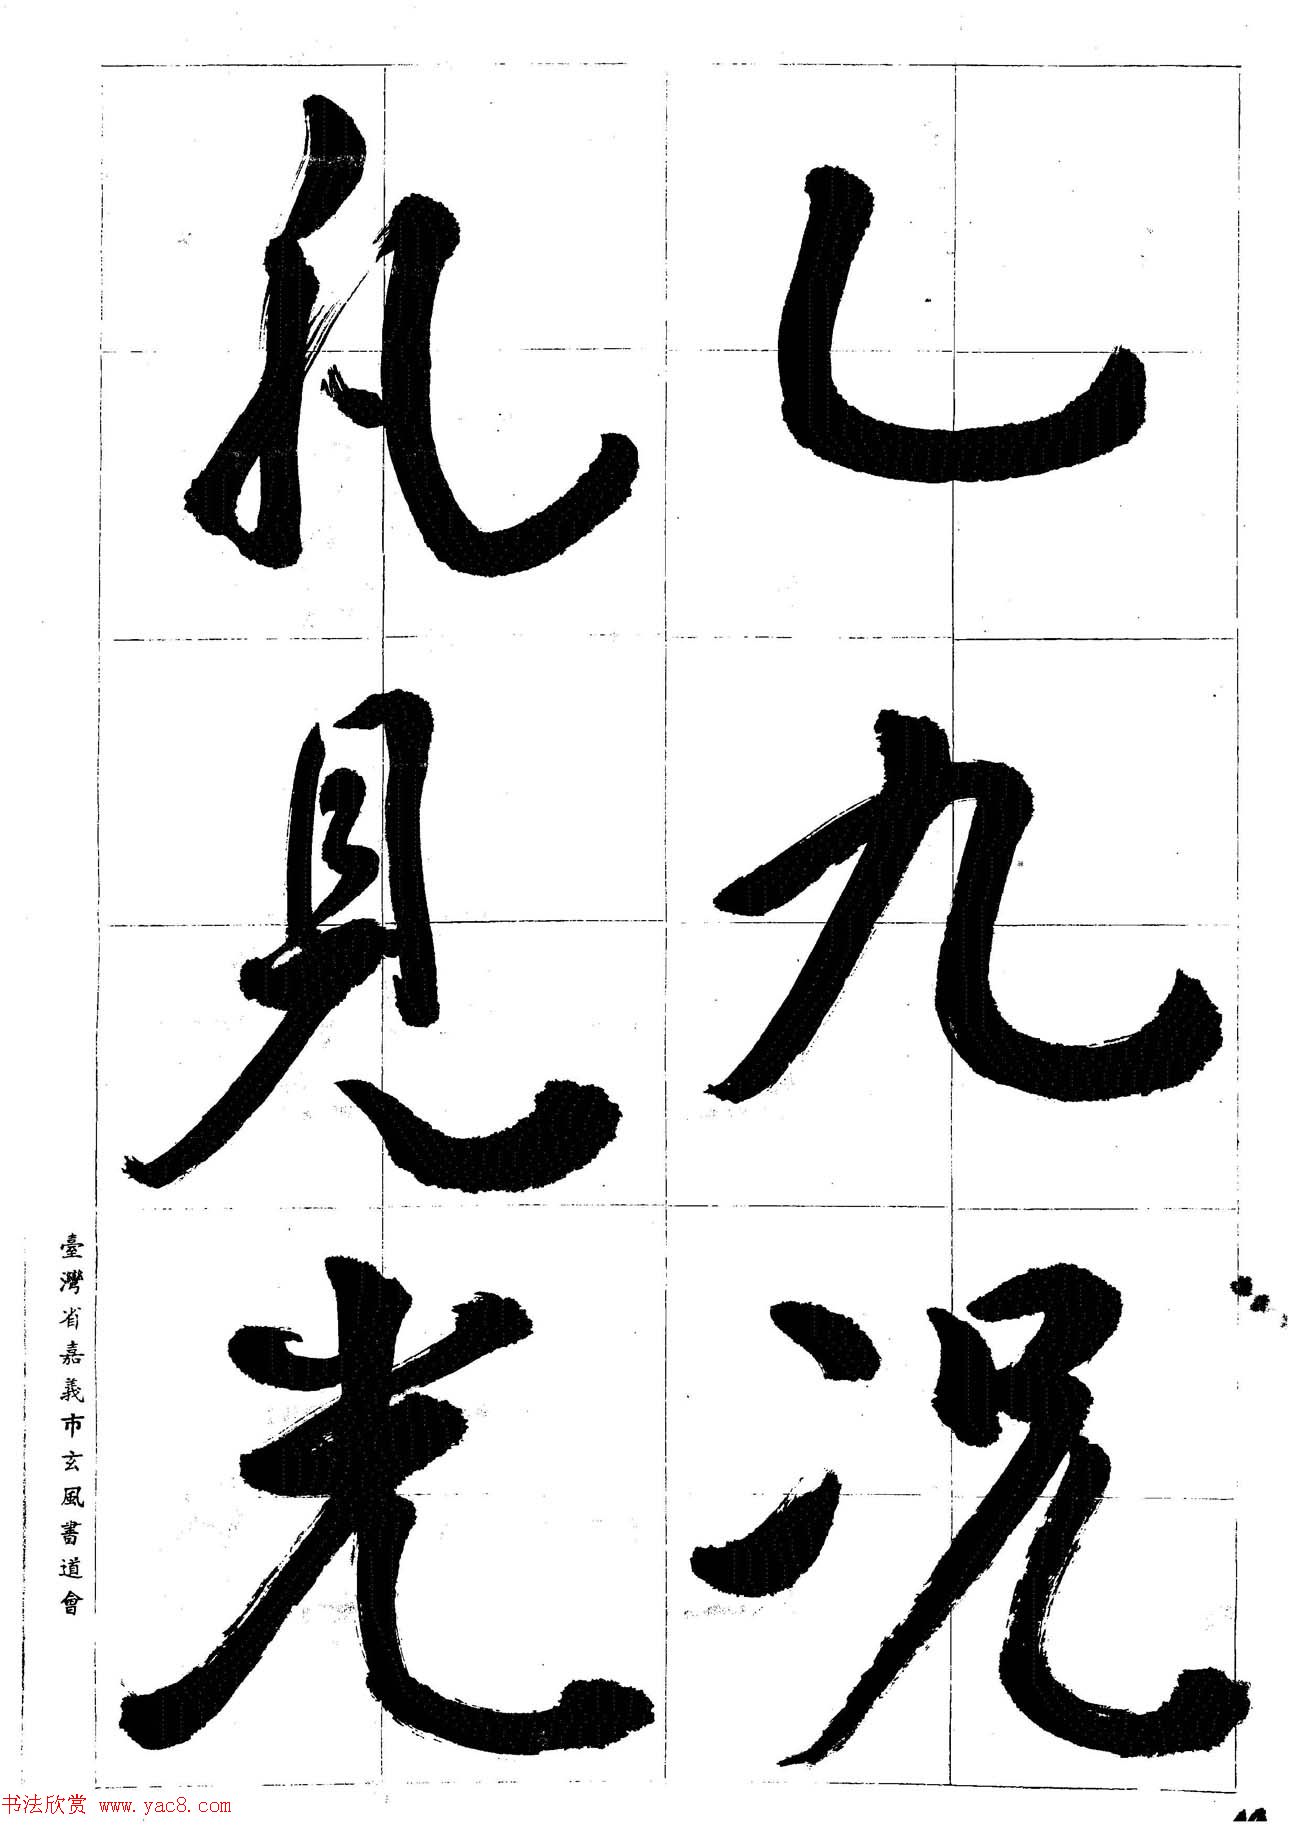 乚九况
礼見光
臺灣省嘉義市玄風書道會
书法欣赏 www.yac8.com